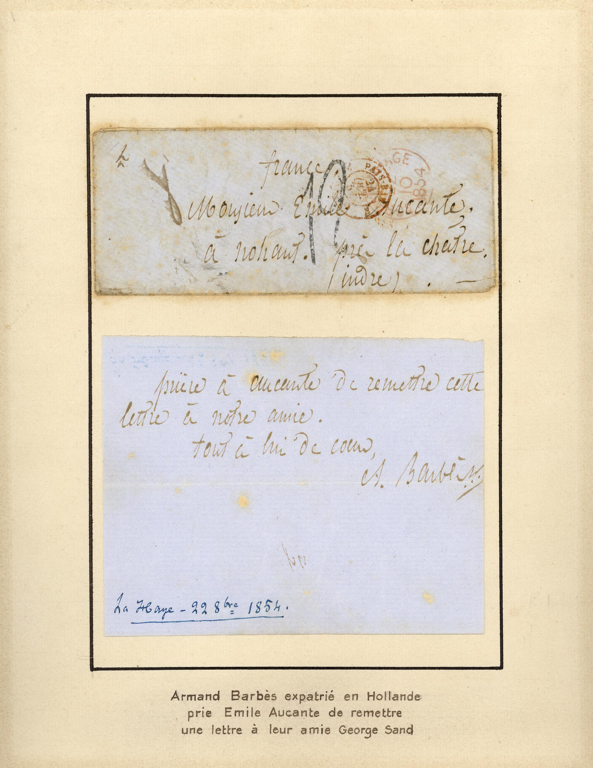 france
Monsieur Emile Aucante.
à nohant. près la chatre.
(indre).
12
PAYS-BAS
1854
prière à aucante de remettre cette
lettre à notre amie.
tout à lui de coeur,
A. Barbès.
La Haye - 22 8bre 1854.
Armand Barbès expatrié en Hollande
prie Emile Aucante de remettre
une lettre à leur amie George Sand